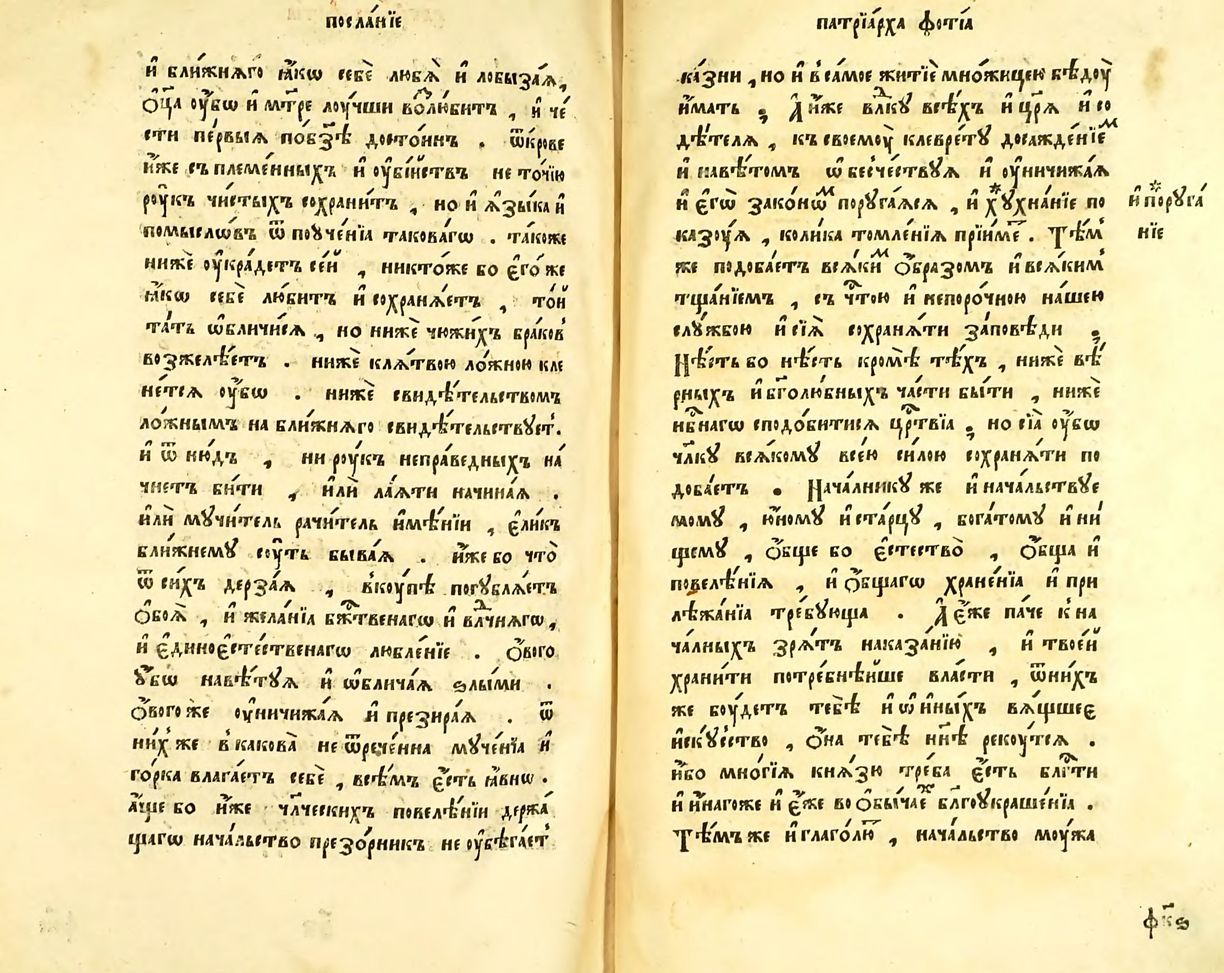 посла́нїе
и҆ бли́жнѧго ꙗ҆́кѡ себѐ любѧ̀ и҆ лобыза́ѧ,
ѻ҆ц҃а ᲂу҆́бѡ и҆ мт҃ре лоу́чши воⷥлю́битъ , и҆ че́
сти пе́рвыѧ по бз҃ѣ досто́инъ . ѿ кро́ве
и҆́же съплеме́нныхъ и҆ ᲂу҆бі́йствъ не то́чїю
рꙋ́къ чи́стыхъ сохрани́тъ , но и҆ ѧ҆зы́ка и҆
помысло́въ ѿ поꙋче́нїа такова́гѡ . та́коже
нижѐ ᲂу҆кра́детъ се́й , никто́же бо є҆го́же
ꙗ҆́кѡ себѐ лю́битъ и҆ сохранѧ́етъ , то́й
та́ть ѡ҆бличи́сѧ , но нижѐ чюжи́хъ бра́ков
возжелѣ́етъ . нижѐ клѧ́твою ло́жною кле
не́тсѧ ᲂу҆́бѡ . нижѐ свидѣ́тельствомъ
ло́жнымъ на бли́жнѧго свидѣ́тельствꙋет.
и҆ ѿ ню́дъ , ни рꙋ́къ непра́ведныхъ на́
чнетъ би́ти , и҆лѝ ла́ѧти начина́ѧ .
и҆лѝ мꙋчи́тель рачи́тель и҆мѣ́нїи , є҆ли́къ
бли́жнемꙋ сꙋ́ть быва́ѧ . и҆́же бо что̀
ѿ си́хъ дерза́ѧ , вкꙋ́пѣ погꙋблѧ́етъ
ѻ҆боѧ̀ , и҆ жела́нїа бж҃твенагѡ и҆ влⷣчнѧгѡ,
и҆ є҆диноє҆сте́ственагѡ любле́нїе . ѻ҆́вого
ᲂу҆́бѡ навѣ́тꙋѧ и҆ ѡ҆блича́ѧ ѕлы́ми .
ѻ҆́вого же ᲂу҆ничижа́ѧ и҆ презира́ѧ . ѿ
ни́х же в какова̀ не ѿрече́нна мꙋче́нїа и҆
го́рка влага́етъ себѐ , всѣ́мъ є҆́сть ꙗ҆́внѡ .
а҆́ще бо и҆́же чл҃ческихъ повелѣ́нїи держа́
щагѡ нача́льство презо́рникъ не ᲂу҆бѣга́ет
патрїа́рха фо́тїа
ка́зни , но и҆ в са́мое житїѐ мно́жицею бѣдꙋ̀
и҆́мать ; А҆ и҆́же влⷣкꙋ всѣ́хъ и҆ цр҃ѧ и҆ со
дѣ́телѧ , къ своемꙋ̀ клевре́тꙋ досажде́нїеⷨ
и҆ навѣ́томъ ѡ҆ бесче́ствꙋѧ и҆ ᲂу҆ничижа́ѧ
и҆ є҆гѡ̀ зако́нѡⷨ порꙋга́ѧсѧ , и҆ * хꙋхна́нїе по
казꙋ́ѧ , коли́ка томле́нїѧ прїи́ме . Тѣ́м
же подоба́етъ всѧ́киⷨ ѻ҆́бразомъ и҆ всѧ́ким
тща́нїемъ , съ чⷭ҇тою и҆ непоро́чною на́шею
слꙋ́жбою и҆ сїѧ̀ сохранѧ́ти за́повѣди ;
Нѣ́сть бо нѣ́сть кромѣ̀ тѣ́хъ , нижѐ вѣ́
рныхъ и҆ бг҃олю́бныхъ ча́сти бы́ти , нижѐ
нбⷭ҇нагѡ сподо́битисѧ црⷭ҇твїа ; но сїа̀ ᲂу҆́бѡ
чл҃кꙋ всѧ́комꙋ все́ю си́лою сохранѧ́ти по
доба́етъ . Нача́лникꙋ же и҆ нача́льствꙋе
момꙋ , ю҆́номꙋ и҆ ста́рцꙋ , бога́томꙋ и҆ ни́
щемꙋ , ѻ҆́бще бо є҆стество̀ , ѻ҆́бща и҆
повелѣ́нїѧ , и҆ ѻ҆́бщагѡ хране́нїа и҆ при
лѣжа́нїа тре́бꙋюща . А҆ є҆́же па́че к на
ча́лныхъ зрѧ́тъ наказа́нїю , и҆ твое́й
храни́ти потре́бнѣйше вла́сти , ѿ ни́хъ
же бꙋ́детъ тебѣ̀ и҆ ѡ҆ и҆ны́хъ вѧ́щшеє
и҆скꙋ́сство , ѻ҆на̀ тебѣ̀ нн҃ѣ рекꙋ́тсѧ .
и҆́бо мно́гїѧ кнѧ́зю тре́ба є҆́сть блгⷣти
и҆ и҆на́гоже и҆ є҆́же во ѻ҆бы́чаеⷯ бл҃гоꙋкраше́нїа .
Тѣ́мъ же и҆ глаго́лю , нача́льство мꙋ́жа
и҆ * порꙋга́
нїе
фк҃ѕ